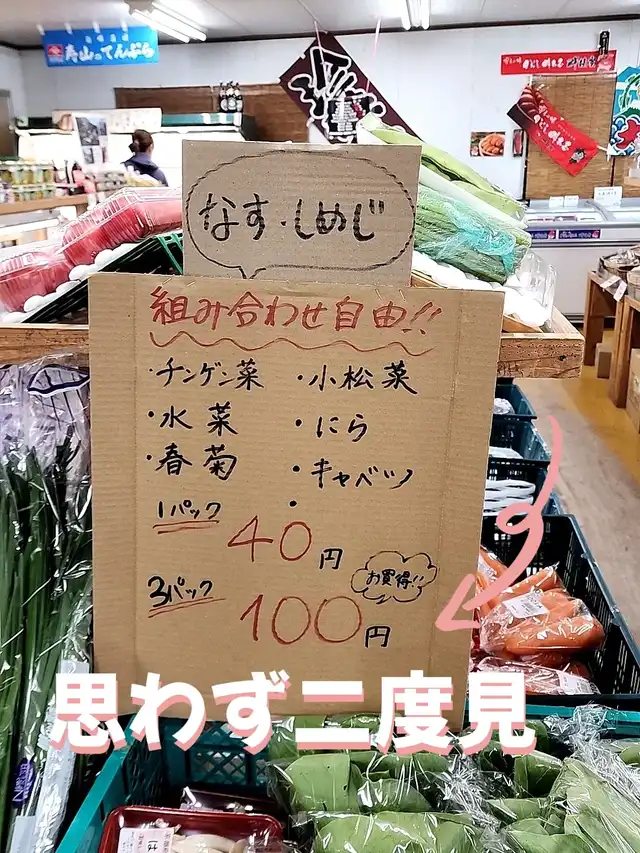 寿山のてんぷら
なす・しめじ
組み合わせ自由!!
・チンゲン菜 ・小松菜
・水菜 ・にら
・春菊 ・キャベツ
1パック
40円
お買得!!
3パック
100円
思わず二度見